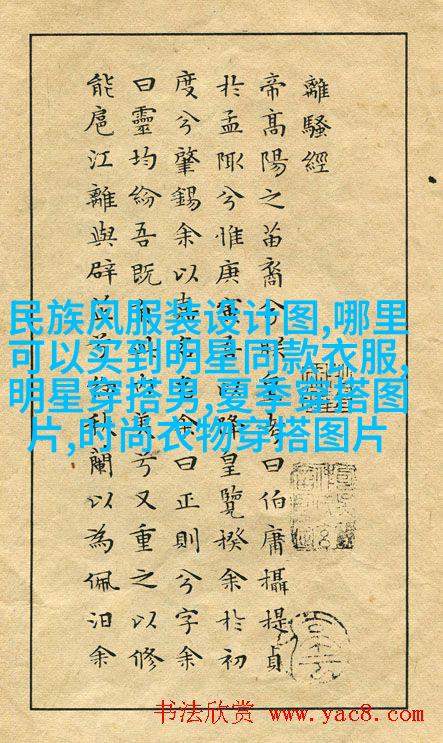 離騷經
帝高陽之苗裔兮朕皇考曰伯庸攝提貞
於孟陬兮惟庚寅吾以降皇覽揆余於初
度兮肇錫余以嘉名名余曰正則兮字余
曰靈均紛吾既有此內美兮又重之以修
能扈江離與辟芷兮紉秋蘭以為佩汨余
民族风服装设计图,哪里
可以买到明星同款衣服,
明星穿搭男,夏季穿搭图
片,时尚衣物穿搭图片
书法欣赏 www.yac8.com